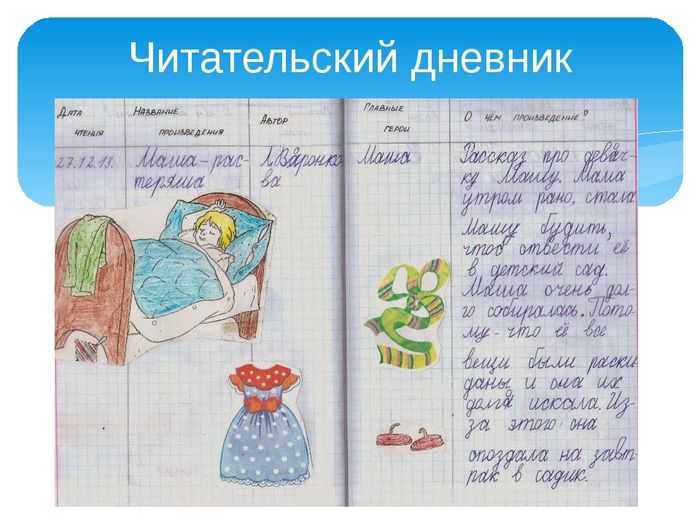 Читательский дневник
Дата
чтения
Название
произведения
Автор
Главные
герои
О чём произведение?
27.12.13.
Маша-рас-
теряша
Л.Воронко-
ва
Маша
Рассказ про девоч-
ку Машу. Мама
утром рано, стала
Машу будить,
чтоб отвести её
в детский сад.
Маша очень дол-
го собиралась. Пото-
му-что её все
вещи были раски-
даны и она их
долго искала. Из-
за этого она
опоздала на завт-
рак в садик.